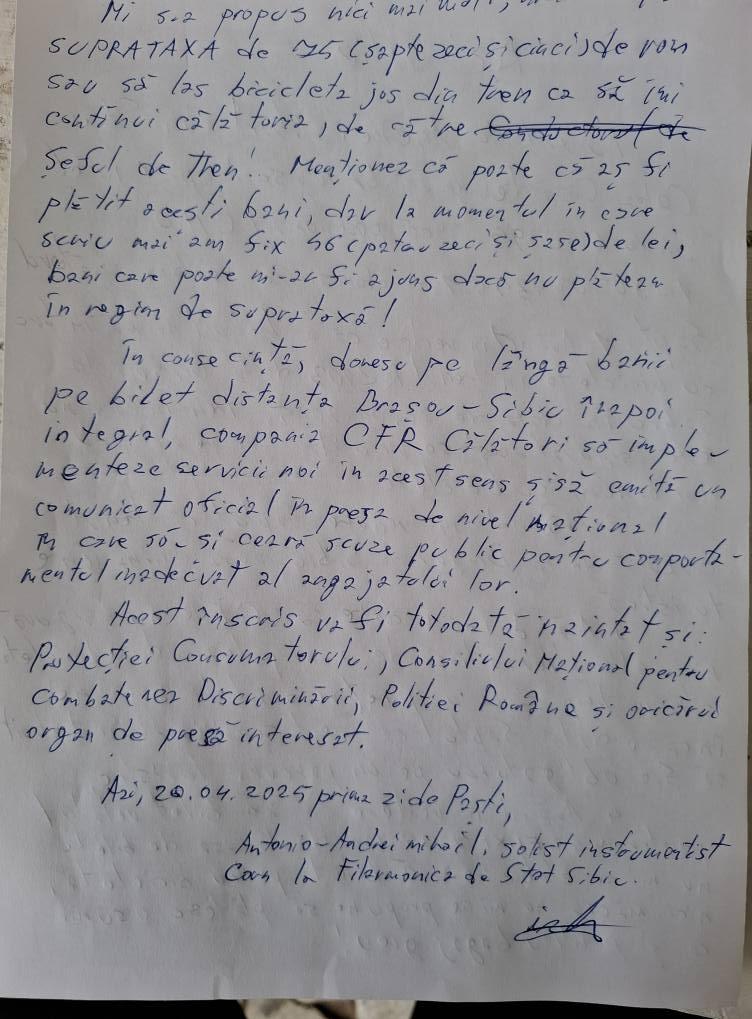 Mi s-a propus nici mai mult,
SUPRATAXA de 75 (șaptezeci și cinci) de ron
sau să las bicicleta jos din tren ca să îmi
continui călătoria, de către
Șeful de Tren! Menționez că poate că aș fi
plătit acești bani, dar la momentul în care
scriu mai am fix 46 (patruzeci și șase) de lei,
bani care poate mi-ar fi ajuns dacă nu plăteam
în regim de suprataxă!
În consecință, doresc pe lângă banii
pe bilet distanța Brașov-Sibiu înapoi
integral, compania CFR Călători să imple-
menteze servicii noi în acest sens și să emită un
comunicat oficial în presa de nivel național
în care să-și ceară scuze public pentru comporta-
mentul inadecvat al angajatului lor.
Acest înscris va fi totodată înaintat și:
Protecției Consumatorului, Consiliului Național pentru
Combaterea Discriminării, Poliției Române și oricărui
organ de presă interesat.
Azi, 20.04.2025 prima zi de Paști,
Antonio-Andrei Mihail, solist instrumentist
Corn la Filarmonica de Stat Sibiu.